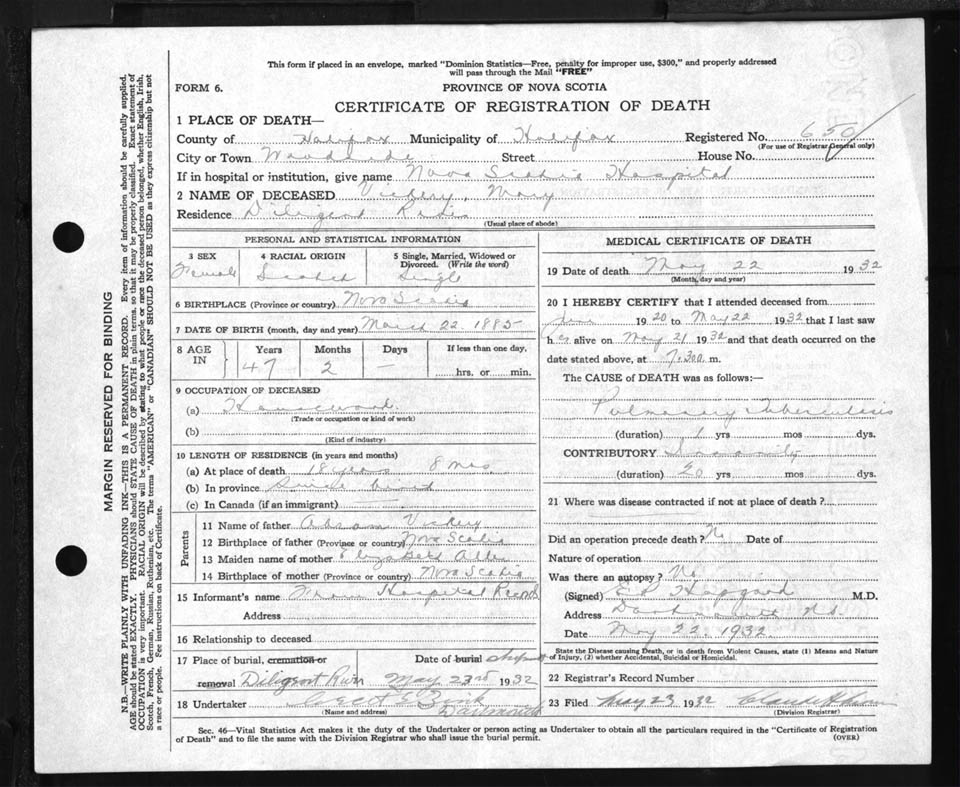 This form if placed in an envelope, marked "Dominion Statistics—Free, penalty for improper use, $300," and properly addressed
will pass through the Mail "FREE"
FORM 6.
PROVINCE OF NOVA SCOTIA
CERTIFICATE OF REGISTRATION OF DEATH
1 PLACE OF DEATH—
County of Halifax Municipality of Halifax Registered No. 650
(For use of Registrar General only)
City or Town Woodside Street House No.
If in hospital or institution, give name Nova Scotia Hospital
2 NAME OF DECEASED Vickery, Mary
Residence Diligent River
(Usual place of abode)
PERSONAL AND STATISTICAL INFORMATION
3 SEX Female
4 RACIAL ORIGIN Scotch
5 Single, Married, Widowed or Divorced. (Write the word) Single
6 BIRTHPLACE (Province or country) Nova Scotia
7 DATE OF BIRTH (month, day and year) March 22. 1885
8 AGE IN Years 47 Months 2 Days — If less than one day, hrs. or min.
9 OCCUPATION OF DECEASED
(a) Housework
(Trade or occupation or kind of work)
(b)
(Kind of industry)
10 LENGTH OF RESIDENCE (in years and months)
(a) At place of death 18 years 8 mos
(b) In province Since birth
(c) In Canada (if an immigrant)
Parents
11 Name of father Vickery
12 Birthplace of father (Province or country) Nova Scotia
13 Maiden name of mother Elizabeth Allen
14 Birthplace of mother (Province or country) Nova Scotia
15 Informant's name From Hospital Records
Address
16 Relationship to deceased
17 Place of burial, cremation or removal Diligent River
Date of burial May 23rd 1932
18 Undertaker Zink Dartmouth
(Name and address)
MEDICAL CERTIFICATE OF DEATH
19 Date of death May 22 1932
(Month, day and year)
20 I HEREBY CERTIFY that I attended deceased from
1920 to May 22 1932 that I last saw
her alive on May 21 1932 and that death occurred on the
date stated above, at 7.30 a. m.
The CAUSE of DEATH was as follows:—
Pulmonary Tuberculosis
(duration) 1 yrs mos dys.
CONTRIBUTORY Insanity
(duration) 20 yrs mos dys.
21 Where was disease contracted if not at place of death?
Did an operation precede death? No Date of
Nature of operation
Was there an autopsy? No.
(Signed) Hopgood M.D.
Address Dartmouth N.S.
Date May 22. 1932.
State the Disease causing Death, or in death from Violent Causes, state (1) Means and Nature
of Injury, (2) whether Accidental, Suicidal or Homicidal.
22 Registrar's Record Number
23 Filed May 23 1932
(Division Registrar)
Sec. 46—Vital Statistics Act makes it the duty of the Undertaker or person acting as Undertaker to obtain all the particulars required in the "Certificate of Registration
of Death" and to file the same with the Division Registrar who shall issue the burial permit.
(OVER)
MARGIN RESERVED FOR BINDING
N.B.—WRITE PLAINLY WITH UNFADING INK—THIS IS A PERMANENT RECORD. Every item of information should be carefully supplied.
AGE should be stated EXACTLY. PHYSICIANS should STATE CAUSE OF DEATH in plain terms, so that it may be properly classified. Exact statement of
OCCUPATION is very important. RACIAL ORIGIN will be described by stating to what people or race the deceased person belonged, whether English, Irish,
Scotch, French, German, Russian, Ruthenian, etc. The terms "AMERICAN" or "CANADIAN" SHOULD NOT BE USED as they express citizenship but not
a race or people. See instructions on back of Certificate.